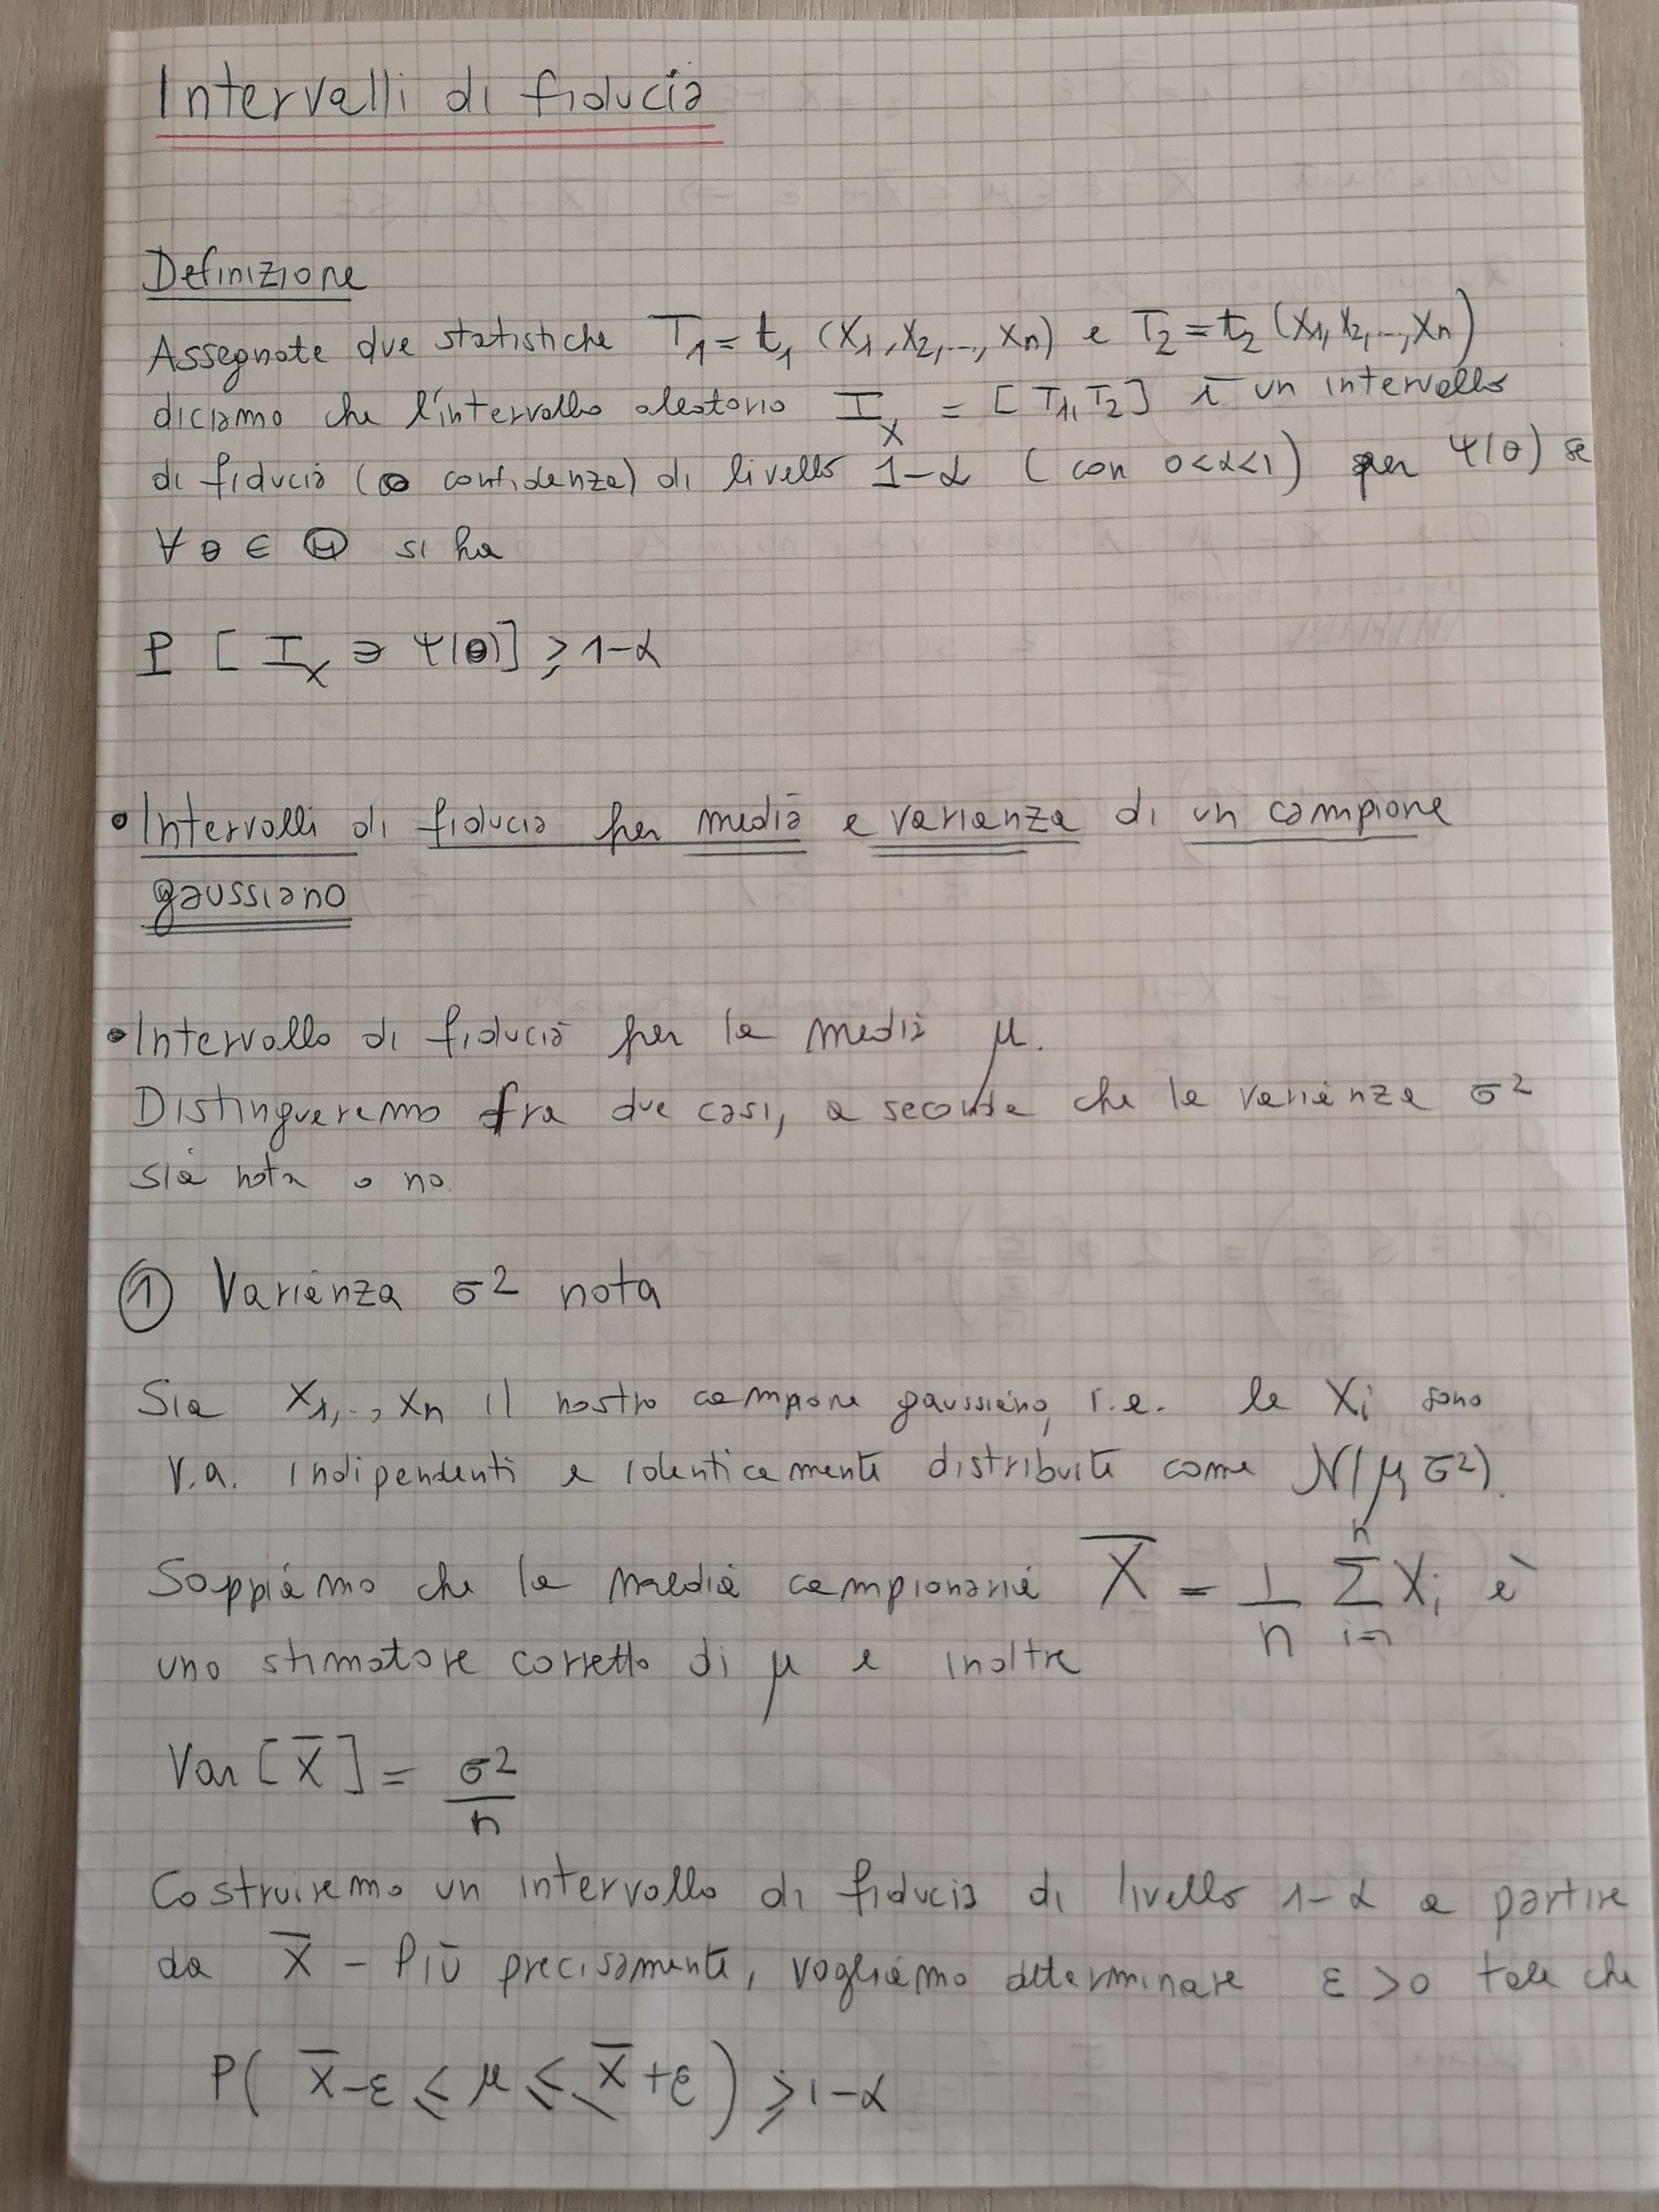 Intervalli di fiducia
Definizione
Assegnate due statistiche T₁ = t₁ (X₁, X₂, ..., Xn) e T₂ = t₂ (X₁, X₂, ..., Xn)
diciamo che l'intervallo aleatorio I_X = [T₁, T₂] è un intervallo
di fiducia (o confidenza) di livello 1-α (con 0<α<1) per Ψ(θ) se
∀ θ ∈ Θ si ha
P [ I_X ∋ Ψ(θ)] ≥ 1-α
• Intervalli di fiducia per media e varianza di un campione
gaussiano
• Intervallo di fiducia per la media μ.
Distingueremo fra due casi, a seconda che la varianza σ²
sia nota o no
① Varianza σ² nota
Sia X₁, .., Xn il nostro campione gaussiano, i.e. le Xi sono
v.a. indipendenti e identicamente distribuite come N(μ, σ²).
Sappiamo che la media campionaria X̄ = 1/n Σ_{i=1}^{n} Xi è
uno stimatore corretto di μ e inoltre
Var [X̄] = σ²/n
Costruiremo un intervallo di fiducia di livello 1-α a partire
da X̄ - Più precisamente, vogliamo determinare ε > 0 tale che
P( X̄-ε ≤ μ ≤ X̄+ε ) ≥ 1-α